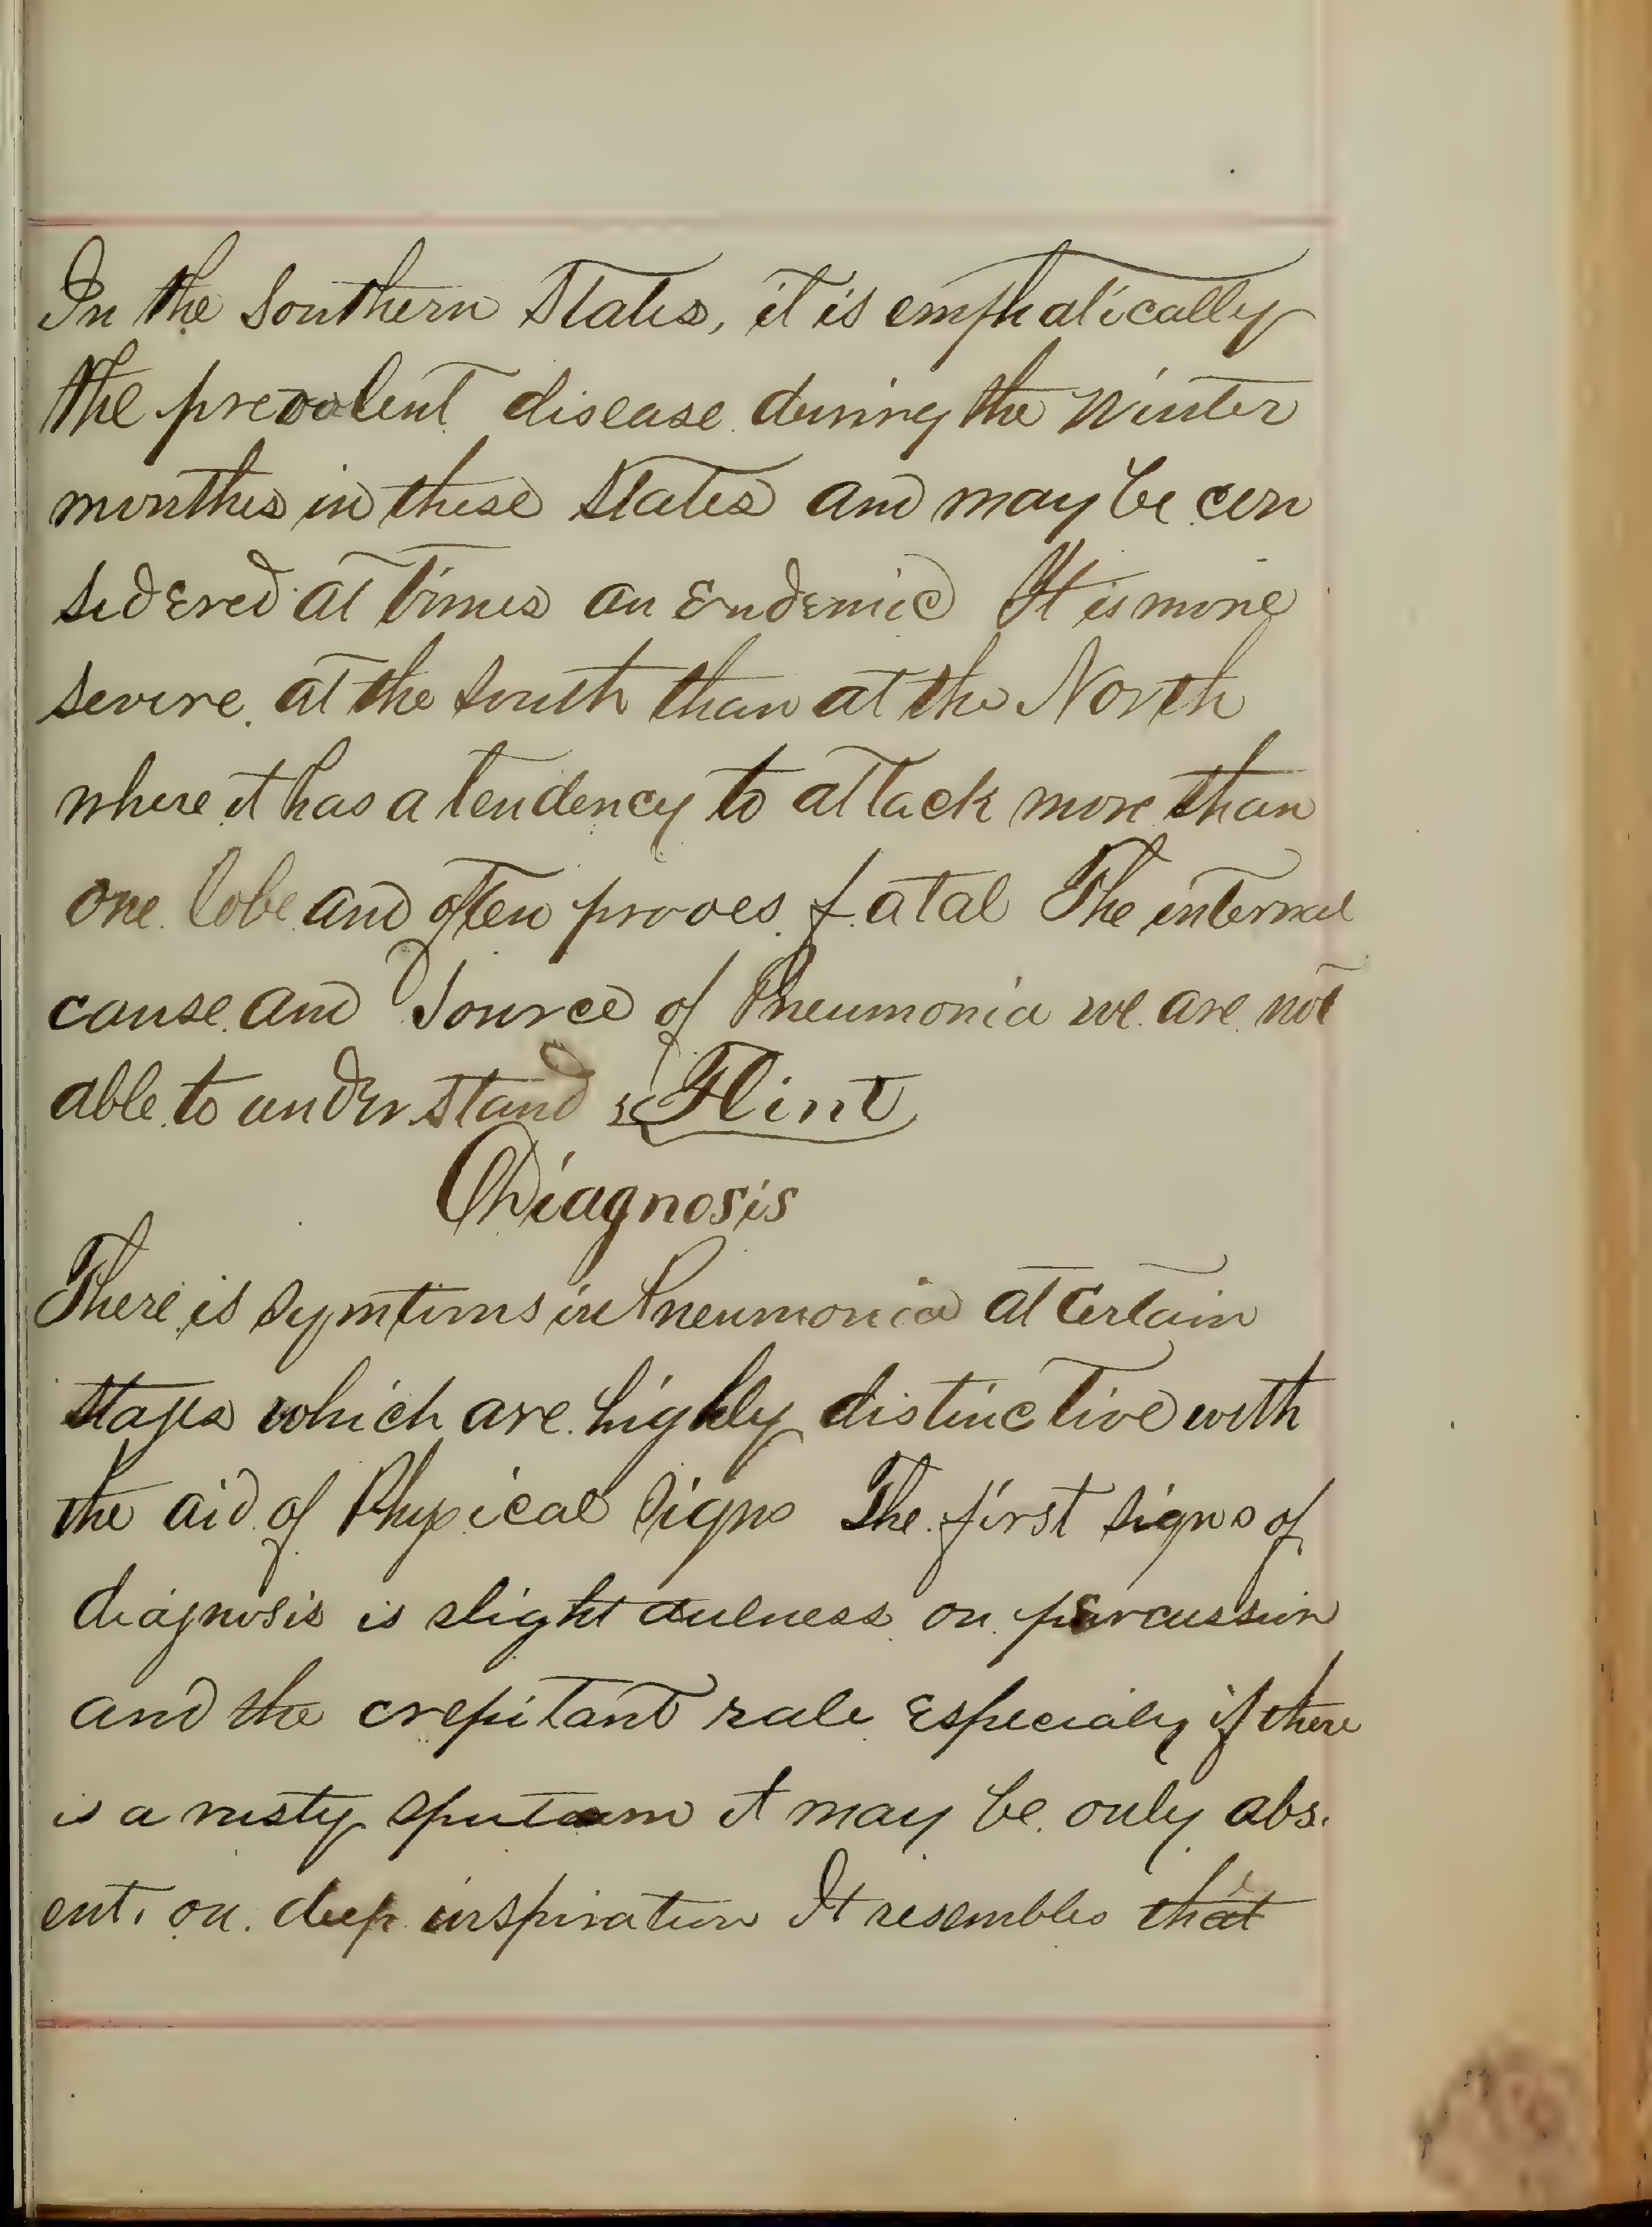 In the Southern States, it is emphatically
the prevalent disease during the Winter
months in these States and may be con
sidered at times an Endemic It is more
severe at the South than at the North
where it has a tendency to attack more than
one lobe and often proves fatal The internal
cause and Source of Pneumonia we are not
able to understand Flint
Diagnosis
There is Symtims in Pneumonia at Certain
stages which are highly distinctive with
the aid of Physical Signs The first Signs of
diagnosis is slight dulness on percussion
and the crepitant rale especialy if there
is a rusty sputum it may be only abs.
ent. on deep inspiration It resembles that